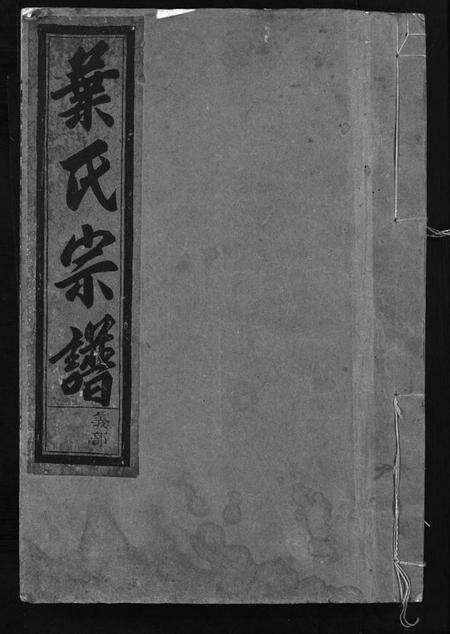 葉氏宗譜
義部